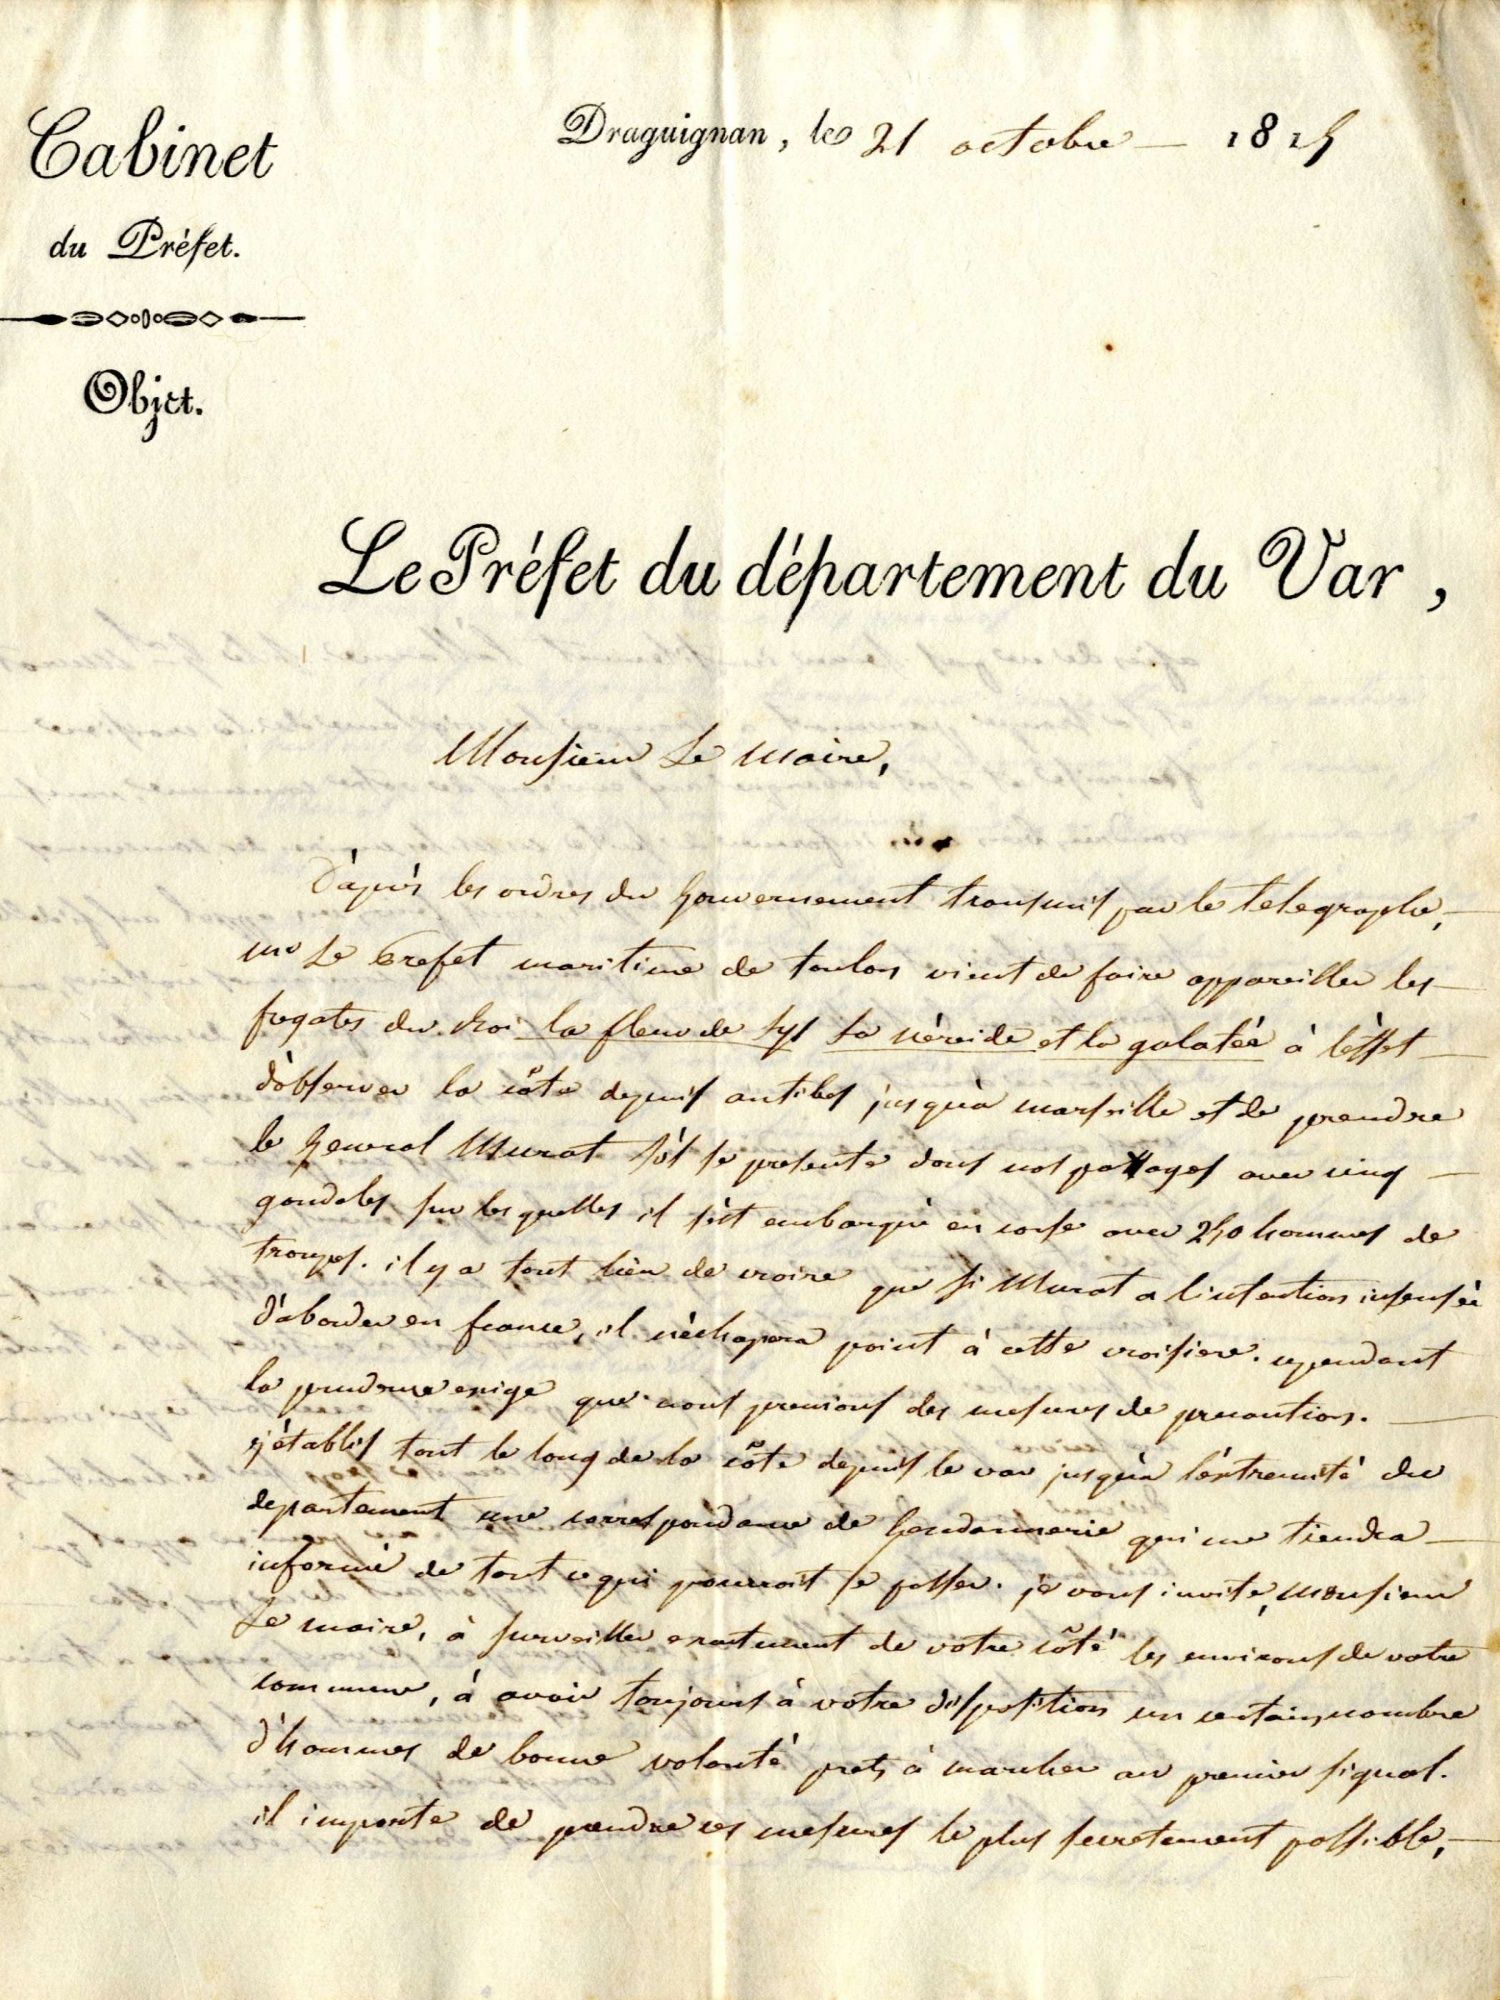 Cabinet
du Préfet.
Objet.
Draguignan, le 21 octobre 1815
Le Préfet du département du Var,
Monsieur Le Maire,
D'après les ordres du gouvernement transmis par le telegraphe,
mr Le Prefet maritime de toulon vient de faire appareiller les
fregates du Roi la fleur de lys la néreide et la galatée à l'éffet
d'observer la côte depuis antibes jusqu'à marseille et de prendre
le general Murat s'il se presente dans nos parages avec cinq
gondoles sur lesquelles il s'est embarqué en corse avec 250 hommes de
troupes. il y a tout lieu de croire que si Murat a l'intention insensée
d'aborder en france, il n'échapera point à cette croisiere. cependant
la prudence exige que nous prenions des mesures de precaution.
j'établis tout le long de la côte depuis le var jusqu'à l'éxtremité du
departement une correspondance de gendarmerie qui me tiendra
informé de tout ce qui pourroit se passer. je vous invite, monsieur
Le maire, à surveiller exactement de votre côté les environs de votre
commune, à avoir toujours à votre disposition un certain nombre
d'hommes de bonne volonté prets à marcher au premier signal.
il importe de prendre ces mesures le plus secretement possible,